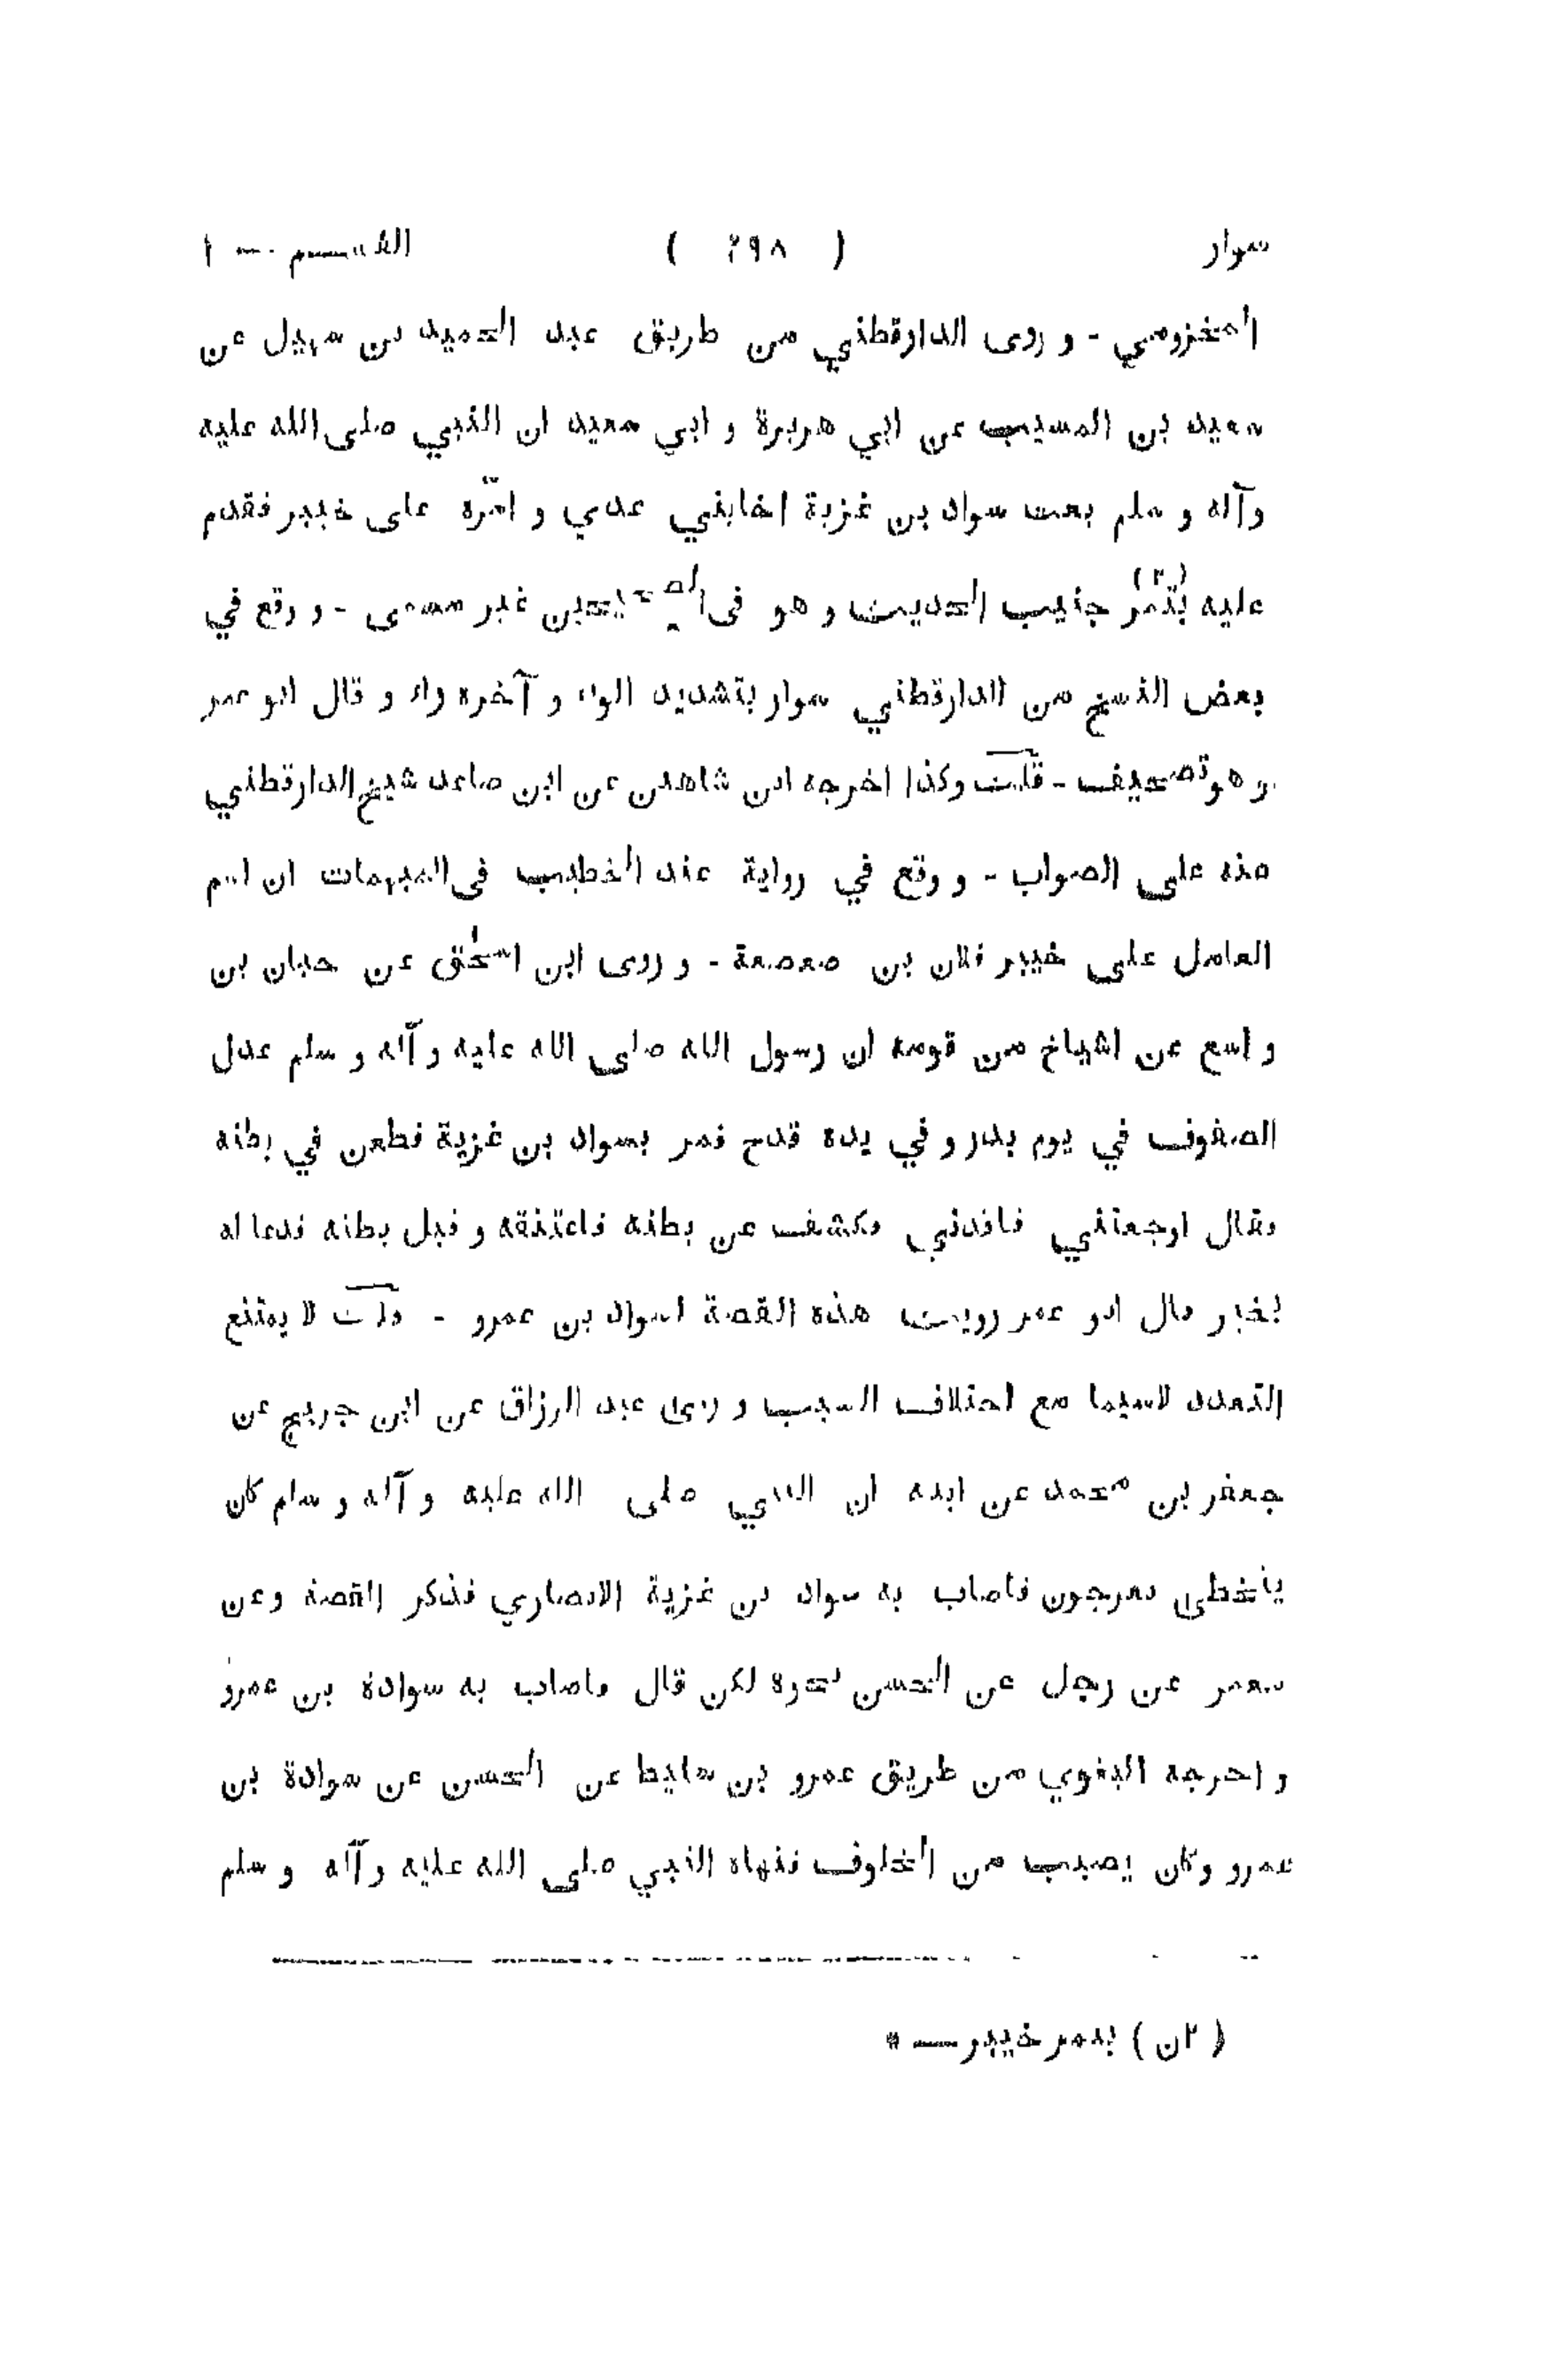 سوار ( ٢٩٨ ) القسم — ١
المخزومي - و روى الدارقطني من طريق عبد الحميد بن سهيل عن
سعيد بن المسيب عن ابي هريرة و ابي سعيد ان النبي صلى الله عليه
وآله و سلم بعث سواد بن غزية اخابني عدي و امّره على خيبر فقدم
عليه بتمر (٢) جنيب الحديث و هو فى الصحيحين غير مسمى - و وقع في
بعض النسخ من الدارقطني سوار بتشديد الواو و آخره راء و قال ابو عمر
و هو تصحيف - قلت وكذا اخرجه ابن شاهين عن ابن صاعد شيخ الدارقطني
منه على الصواب - و وقع في رواية عند الخطيب فى المبهمات ان اسم
العامل على خيبر فلان بن صعصعة - و روى ابن اسحٰق عن حبان بن
واسع عن اشياخ من قومه ان رسول الله صلى الله عليه و آله و سلم عدل
الصفوف في يوم بدر و في يده قدح فمر بسواد بن غزية فطعن في بطنه
فقال اوجعتني فاقدني فكشف عن بطنه فاعتنقه و قبل بطنه فدعا له
بخير قال ابو عمر رويت هذه القصة لسواد بن عمرو - قلت لا يمتنع
التعدد لاسيما مع اختلاف السبب و روى عبد الرزاق عن ابن جريج عن
جعفر بن محمد عن ابيه ان النبي صلى الله عليه و آله و سلم كان
يتخطى بعرجون فاصاب به سواد بن غزية الانصاري فذكر القصة وعن
معمر عن رجل عن الحسن نحوه لكن قال فاصاب به سوادة بن عمرو
و اخرجه البغوي من طريق عمرو بن سليط عن الحسن عن سوادة بن
عمرو وكان يصيب من الخلوف فنهاه النبي صلى الله عليه و آله و سلم
( ٢ن ) بدمر خيبر — *